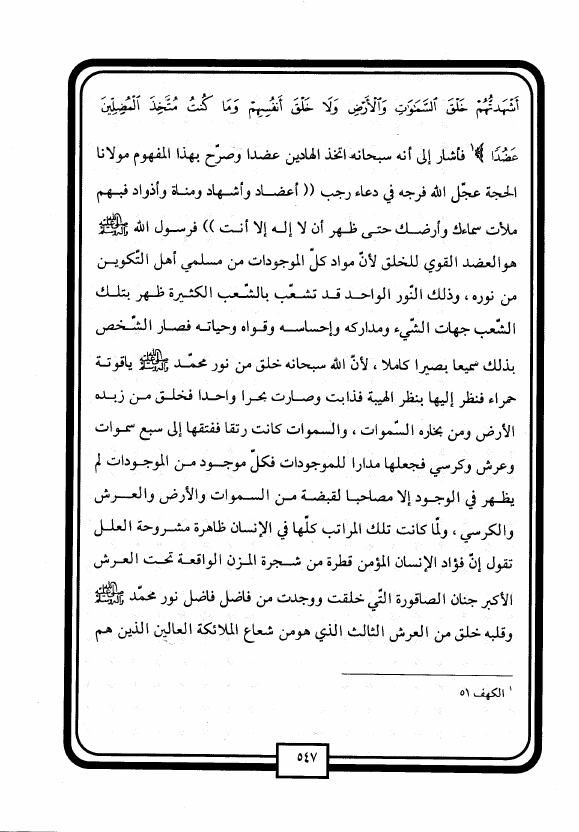 أَشْهَدتُّهُمْ خَلْقَ السَّمَٰوَاتِ وَالْأَرْضِ وَلَا خَلْقَ أَنفُسِهِمْ وَمَا كُنتُ مُتَّخِذَ الْمُضِلِّينَ
عَضُدًا ﴾١ فأشار إلى أنه سبحانه اتخذ الهادين عضدا وصرّح بهذا المفهوم مولانا
الحجة عجّل الله فرجه في دعاء رجب (( أعضاد وأشهاد ومناة وأذواد فبهم
ملأت سماءك وأرضك حتى ظهر أن لا إله إلا أنت )) فرسول الله ﷺ
هوالعضد القوي للخلق لأنّ مواد كلّ الموجودات من مسلمي أهل التّكوين
من نوره ، وذلك النّور الواحد قد تشعّب بالشّعب الكثيرة ظهر بتلك
الشّعب جهات الشّيء ومداركه وإحساسه وقواه وحياته فصار الشّخص
بذلك سميعا بصيرا كاملا ، لأنّ الله سبحانه خلق من نور محمّد ﷺ ياقوتة
حمراء فنظر إليها بنظر الهيبة فذابت وصارت بحرا واحدا فخلق من زبده
الأرض ومن بخاره السّموات ، والسموات كانت رتقا ففتقها إلى سبع سموات
وعرش وكرسي فجعلها مدارا للموجودات فكلّ موجود من الموجودات لم
يظهر في الوجود إلا مصاحبا لقبضة من السموات والأرض والعرش
والكرسي ، ولمّا كانت تلك المراتب كلّها في الإنسان ظاهرة مشروحة العلل
تقول إنّ فؤاد الإنسان المؤمن قطرة من شجرة المزن الواقعة تحت العرش
الأكبر جنان الصاقورة التّي خلقت ووجدت من فاضل فاضل نور محمّد ﷺ
وقلبه خلق من العرش الثالث الذي هومن شعاع الملائكة العالين الذين هم
١ الكهف ٥١
٥٤٧